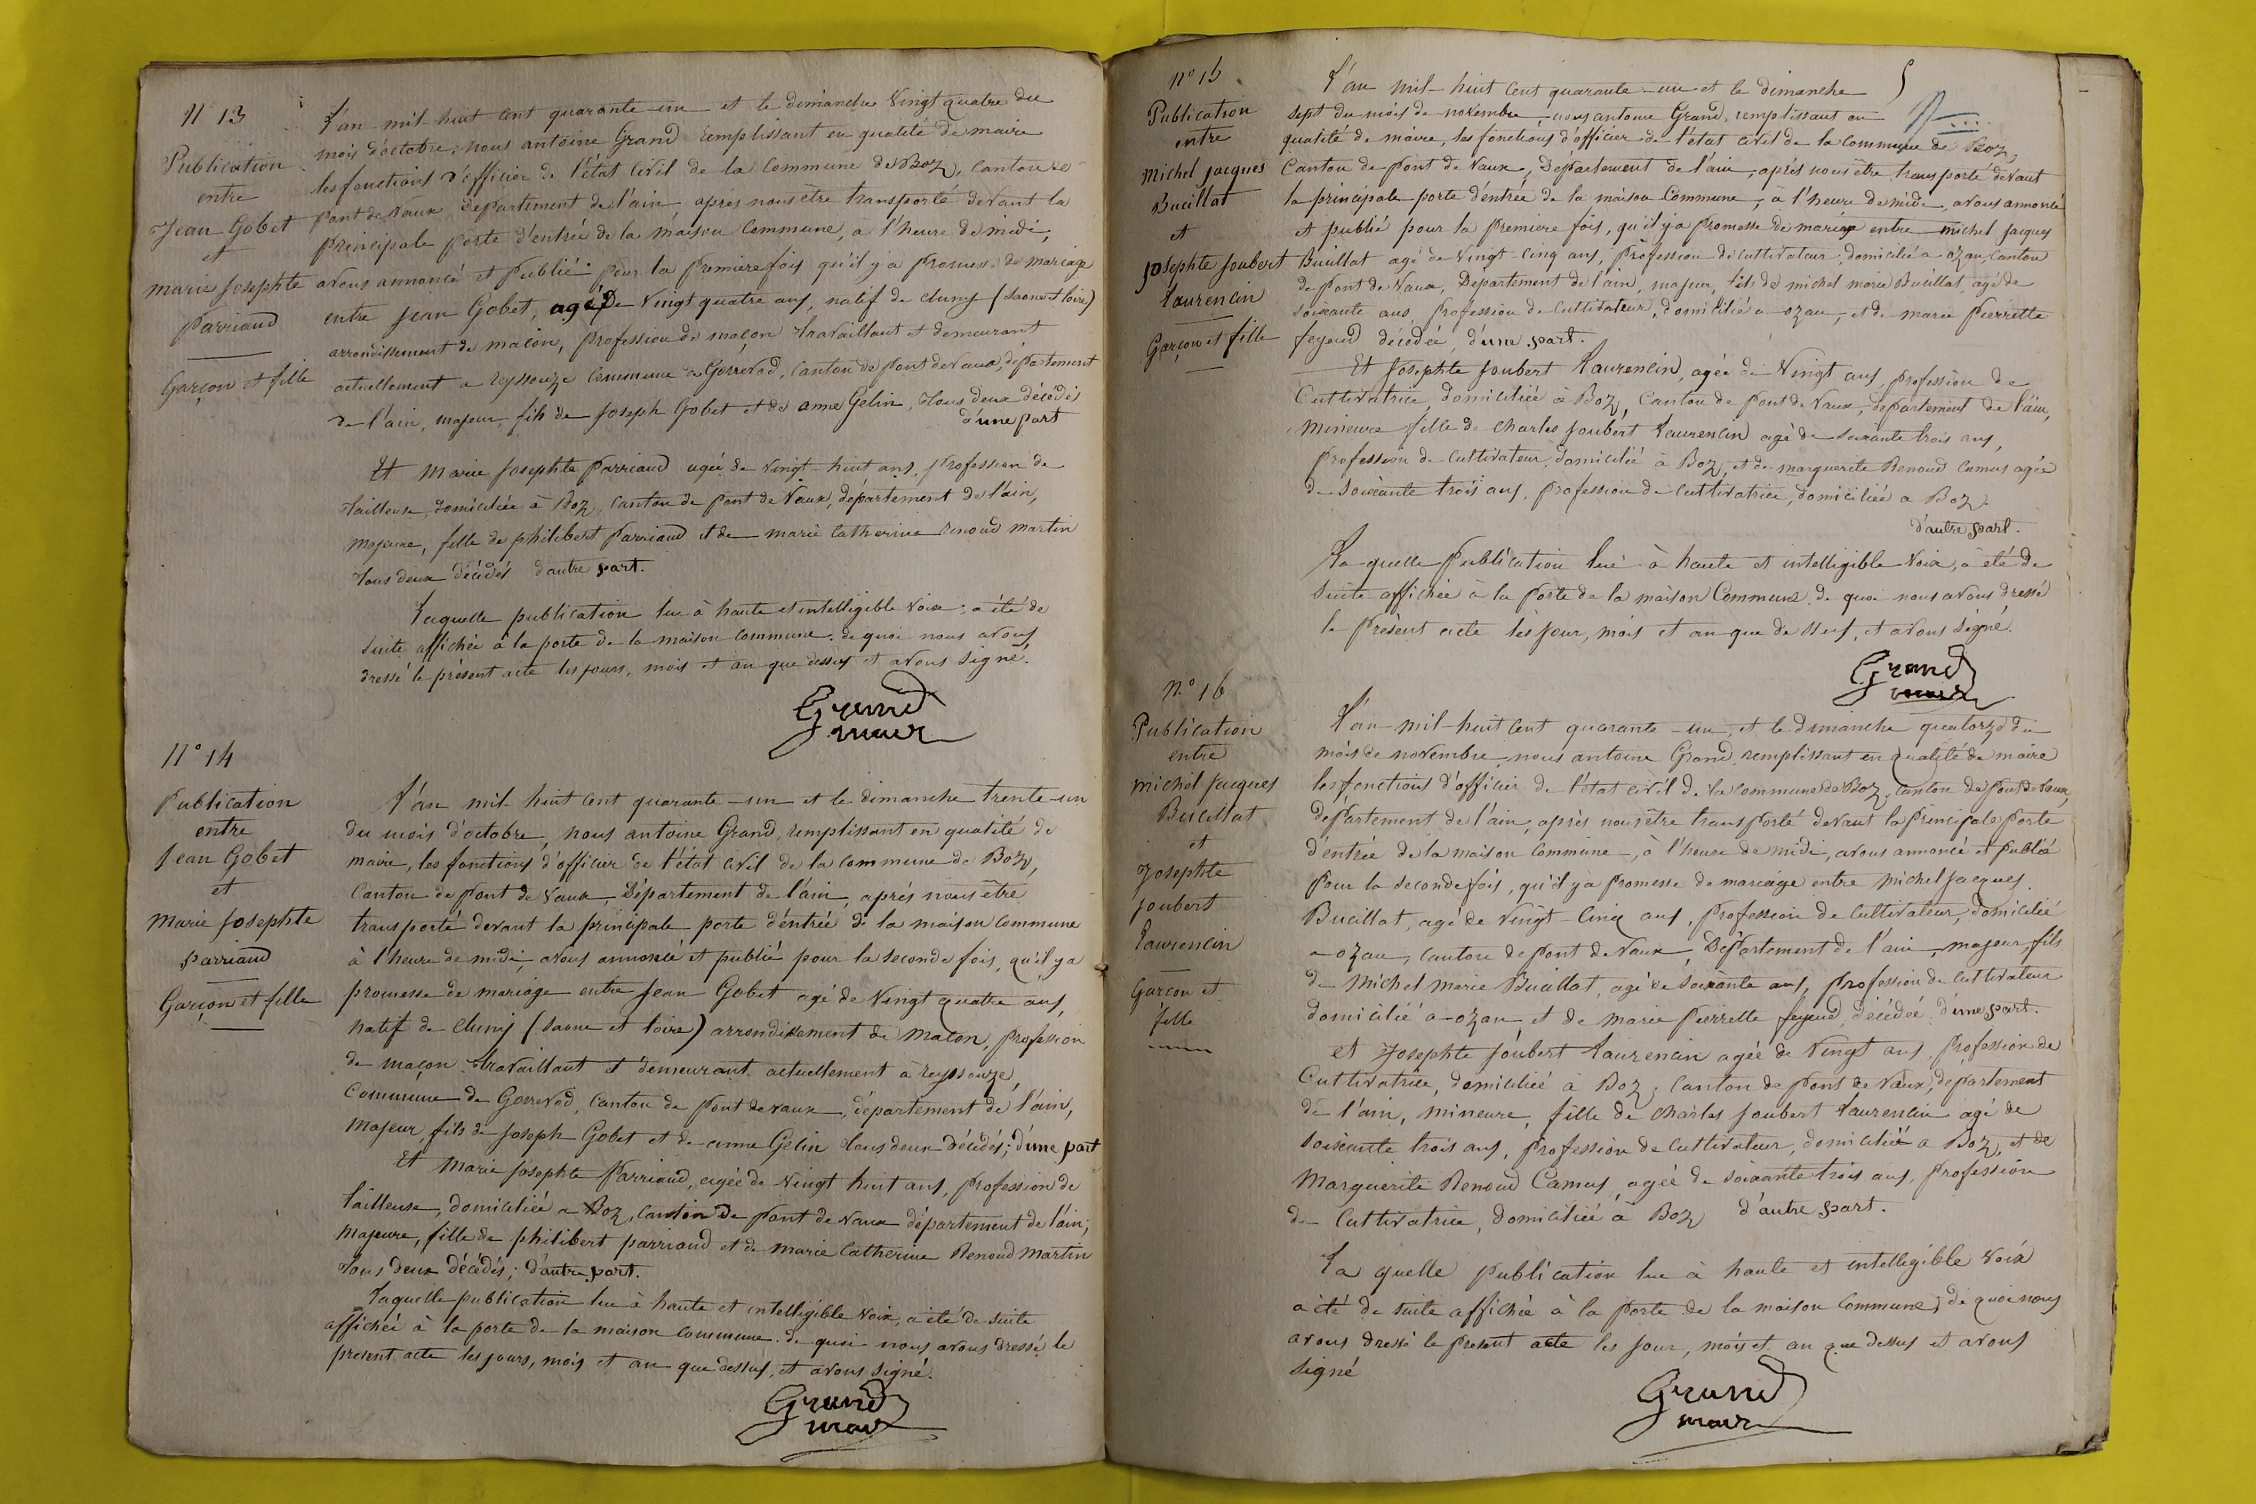 N° 13
Publication
entre
Jean Gobet
et
marie Josephte
Parriaud
Garçon et fille
L'an mil huit cent quarante un et le dimanche Vingt quatre du
mois d'octobre, nous antoine Grand remplissant en qualité de maire
les fonctions d'officier de l'état civil de la commune de Boz, canton de
Pont de Vaux Departement de l'ain, après nous être transporté devant la
principale porte d'entrée de la maison Commune, a l'heure de midi,
avons annoncé et Publié pour la premiere fois qu'il y a Promesse de mariage
entre Jean Gobet, agé De Vingt quatre ans, natif de cluny (saone et loire)
arrondissement de macon, profession de maçon travaillant et demeurant
actuellement a reyssouze Commune de Gorrevod, canton de pont de vaux, département
de l'ain, majeur, fils de Joseph Gobet et de anne Gelin, tous deux décédés
d'une part
Et Marie Josephte Parriaud agée de vingt-huit ans, profession de
tailleuse, domiciliée à Boz, canton de Pont de Vaux, département de l'ain,
majeure, fille de philibert Parriaud et de marie Catherine Renoud Martin
tous deux décédés d'autre part.
Laquelle publication lue à haute et intelligible voix, a été de
suite affichée à la porte de la maison commune. de quoi nous avons
dressé le présent acte les jours, mois et an que dessus et avons signé.
Grand
maire
N° 14
Publication
entre
Jean Gobet
et
Marie Josephte
Parriaud
Garçon et fille
L'an mil huit cent quarante-un et le dimanche trente-un
du mois d'octobre, nous antoine Grand, remplissant en qualité de
maire, les fonctions d'officier de l'état civil de la commune de Boz,
Canton de Pont de Vaux, Département de l'ain, après nous être
transporté devant la principale porte d'entrée de la maison commune
à l'heure de midi, avons annoncé et publié pour la seconde fois, qu'il y a
promesse de mariage entre Jean Gobet agé de Vingt quatre ans,
natif de Cluny (saone et loire) arrondissement de Macon, profession
de maçon travaillant et demeurant actuellement à reyssouze,
Commune de Gorrevod, canton de Pont de vaux, département de l'ain,
Majeur, fils de Joseph Gobet et de anne Gelin tous deux décédés; d'une part
Et Marie Josephte Parriaud, agée de Vingt huit ans, profession de
tailleuse, domiciliée a Boz, canton De Pont de vaux département de l'ain;
Majeure, fille de philibert parriaud et de Marie Catherine Renoud Martin
tous deux décédés; d'autre part.
Laquelle publication lue à haute et intelligible voix, a été de suite
affichée à la porte de la maison commune. de quoi nous avons dressé le
présent acte les jours, mois et an que dessus, et avons signé.
Grand
maire
N° 15
Publication
entre
Michel Jacques
Bucillat
et
Josephte Joubert
Laurencin
Garçon et fille
L'an mil-huit cent quarante-un et le dimanche
sept du mois de novembre, nous antoine Grand, remplissant en
qualité de maire, les fonctions d'officier de l'état civil de la commune de Boz,
Canton de Pont de Vaux, Département de l'ain, après nous être transporté devant
la principale porte d'entrée de la maison Commune, à l'heure de midi, avons annoncé
et publié pour la premiere fois, qu'il y a promesse de mariage entre Michel Jacques
Bucillat agé de Vingt-Cinq ans, Profession de cultivateur, domicilié a ozan, canton
de Pont de Vaux, Departement de l'ain, majeur, fils de michel marie Bucillat, agé de
soixante ans, profession de Cultivateur, domicilié a ozan, et de marie Pierrette
feyeud décédée, d'une part.
Et Josephte Joubert Laurencin, agée de Vingt ans, profession de
Cultivatrice, domiciliée à Boz, Canton de pont de Vaux, Departement de l'ain,
Mineure fille de Charles Joubert Laurencin agé de soixante trois ans,
Profession de cultivateur, domicilié à Boz, et de marguerite Renoud Camus agée
de soixante trois ans, profession de cultivatrice, domiciliée a Boz.
d'autre part.
La quelle Publication lue à haute et intelligible Voix, a été de
suite affichée à la porte de la maison Commune. de quoi nous avons dressé
le présent acte les jour, mois et an que dessus, et avons signé.
Grand
maire
N° 16
Publication
entre
Michel Jacques
Bucillat
et
Josephte
Joubert
Laurencin
Garçon et
fille
L'an mil-huit cent quarante-un, et le dimanche quatorze du
mois de novembre, nous antoine Grand, remplissant en qualité de maire
les fonctions d'officier de l'état civil de la commune de Boz, canton de Pont de Vaux,
département de l'ain, après nous être transporté devant la principale porte
d'entrée de la maison commune, à l'heure de midi, avons annoncé et publié
Pour la seconde fois, qu'il y a promesse de mariage entre Michel Jacques
Bucillat, agé de vingt-Cinq ans, Profession de Cultivateur, domicilié
a ozan, canton de Pont de Vaux, Département de l'ain, majeur, fils
de Michel Marie Bucillat, agé de soixante ans, profession de cultivateur
domicilié à ozan, et de Marie Pierrette feyeud, décédée d'une part.
et Josephte Joubert Laurencin agée de Vingt ans, profession de
Cultivatrice, domiciliée à Boz, Canton de Pont de Vaux, département
de l'ain, Mineure, fille de Charles Joubert Laurencin agé de
soixante trois ans, Profession de cultivateur, domicilié a Boz, et de
Marguerite Renoud Camus, agée de soixante trois ans, profession
de Cultivatrice, domiciliée à Boz d'autre part.
La quelle publication lue à haute et intelligible voix
a été de suite affichée à la porte de la maison commune, de quoi nous
avons dressé le présent acte les jour, mois et an que dessus et avons
signé
Grand
maire